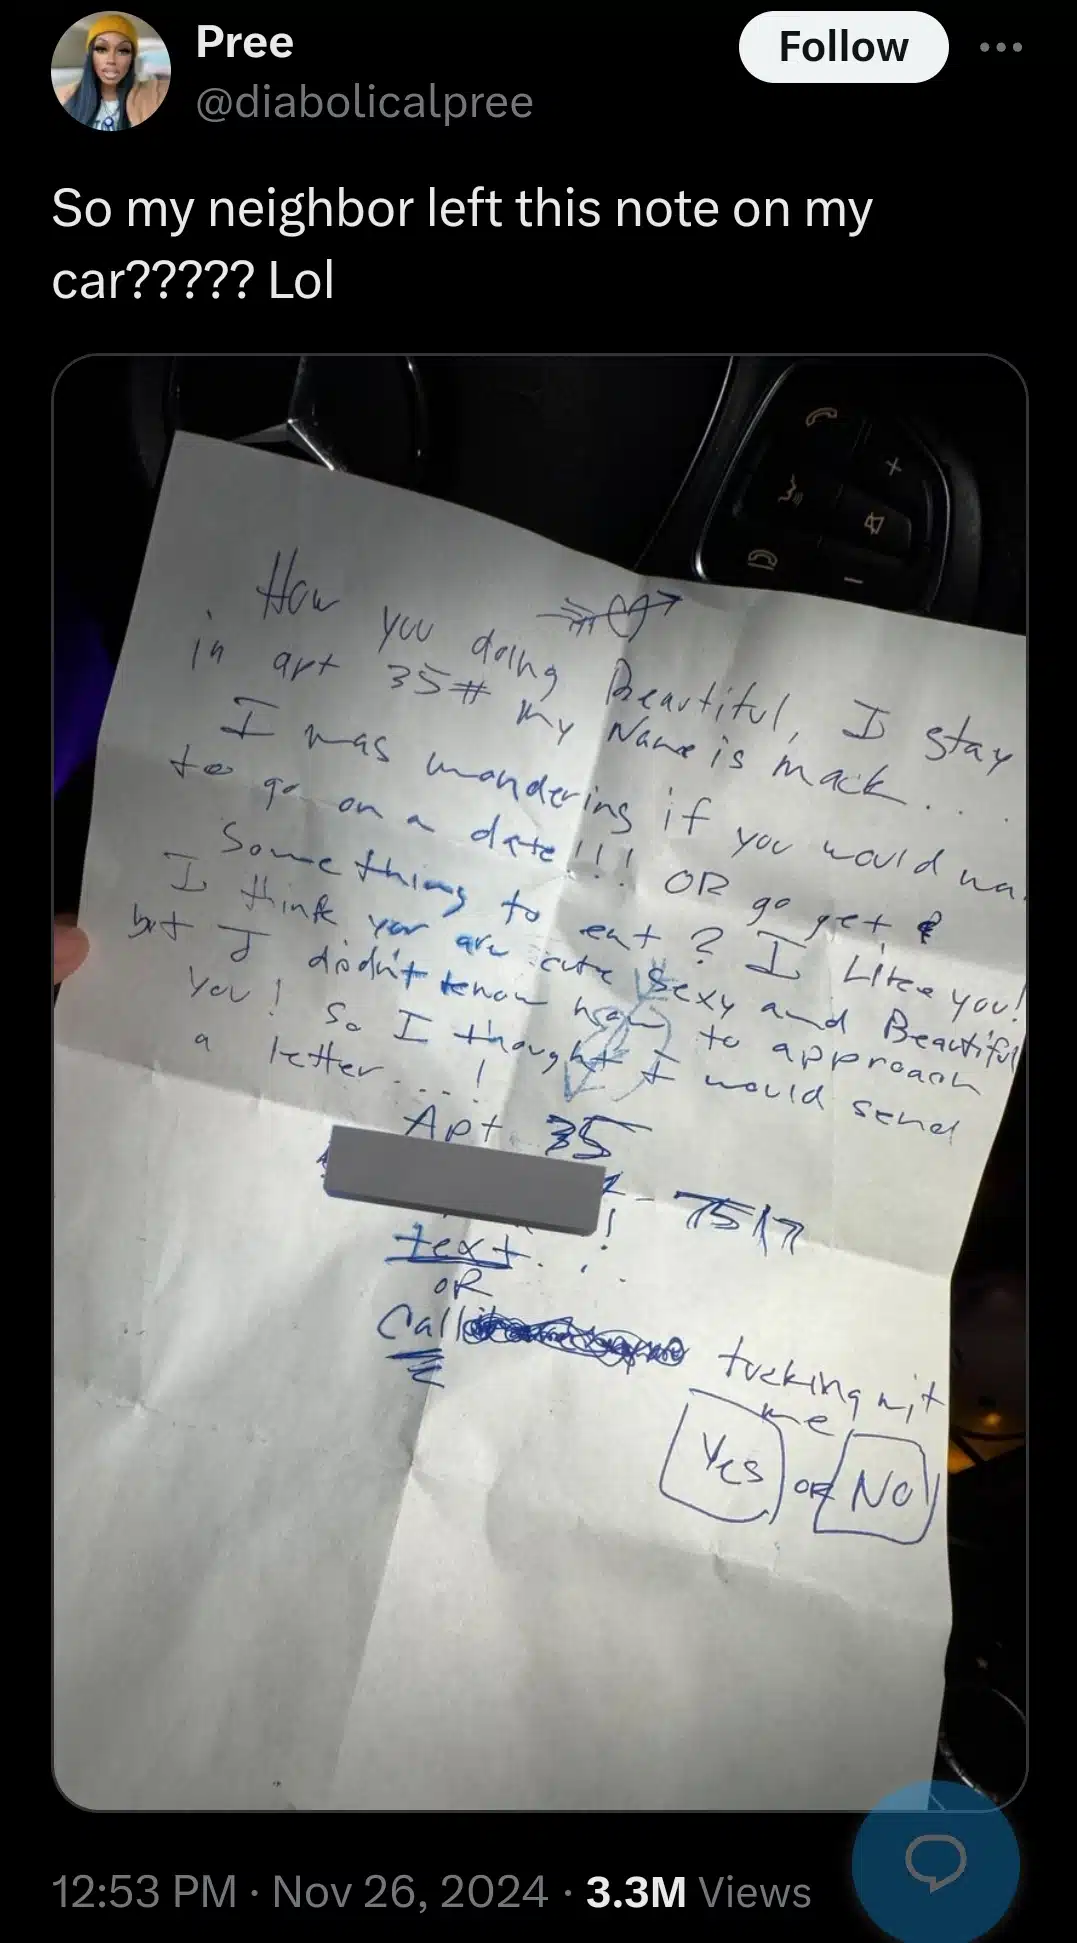 Pree
Follow
@diabolicalpree
So my neighbor left this note on my
car????? Lol
How you doing Beautiful, I stay
in apt 35# my Name is mack...
I was wondering if you would wa
to go on a date!!! OR go get
Something to eat? I Likee you!
I think you are cute sexy and Beautiful
but I didn't know how to approach
you! So I thought I would send
a letter....!
Apt 35
- 7517
text...!
OR
Call
fucking wit
me
Yes OR No
12:53 PM · Nov 26, 2024 · 3.3M Views